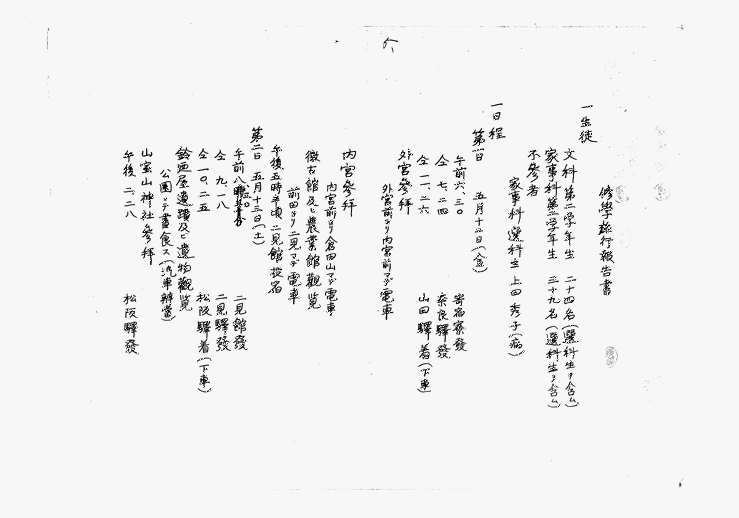 修學旅行報告書
一生徒
文科第二学年生　二十四名(選科生ヲ含ム)
家事科第二学年生　三十九名(選科生ヲ含ム)
不參者
家事科選科生　上田秀子(病)
一日程
第一日　五月十二日(金)
午前六、三〇　寄宿寮發
仝　七、二四　奈良驛發
仝　一一、二六　山田驛着(下車)
外宮參拜
外宮前ヨリ内宮前マデ電車
内宮參拜
内宮前ヨリ倉田山マデ電車
徴古館及ヒ農業館觀覧
前田ヨリ二見マデ電車
午後五時半頃二見館投宿
第二日　五月十三日(土)
午前八、　二見館發
仝　九、一八　二見驛發
仝一〇、二五　松阪驛着(下車)
鈴迺屋遺蹟及ヒ遺物觀覧
公園ニテ晝食ス(汽車辨當)
山室山神社參拜
午後二、二八　松阪驛發